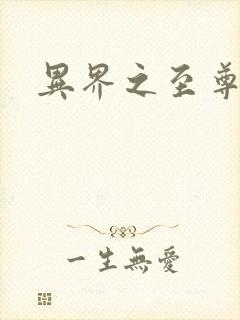 異界之至尊
一生無愛